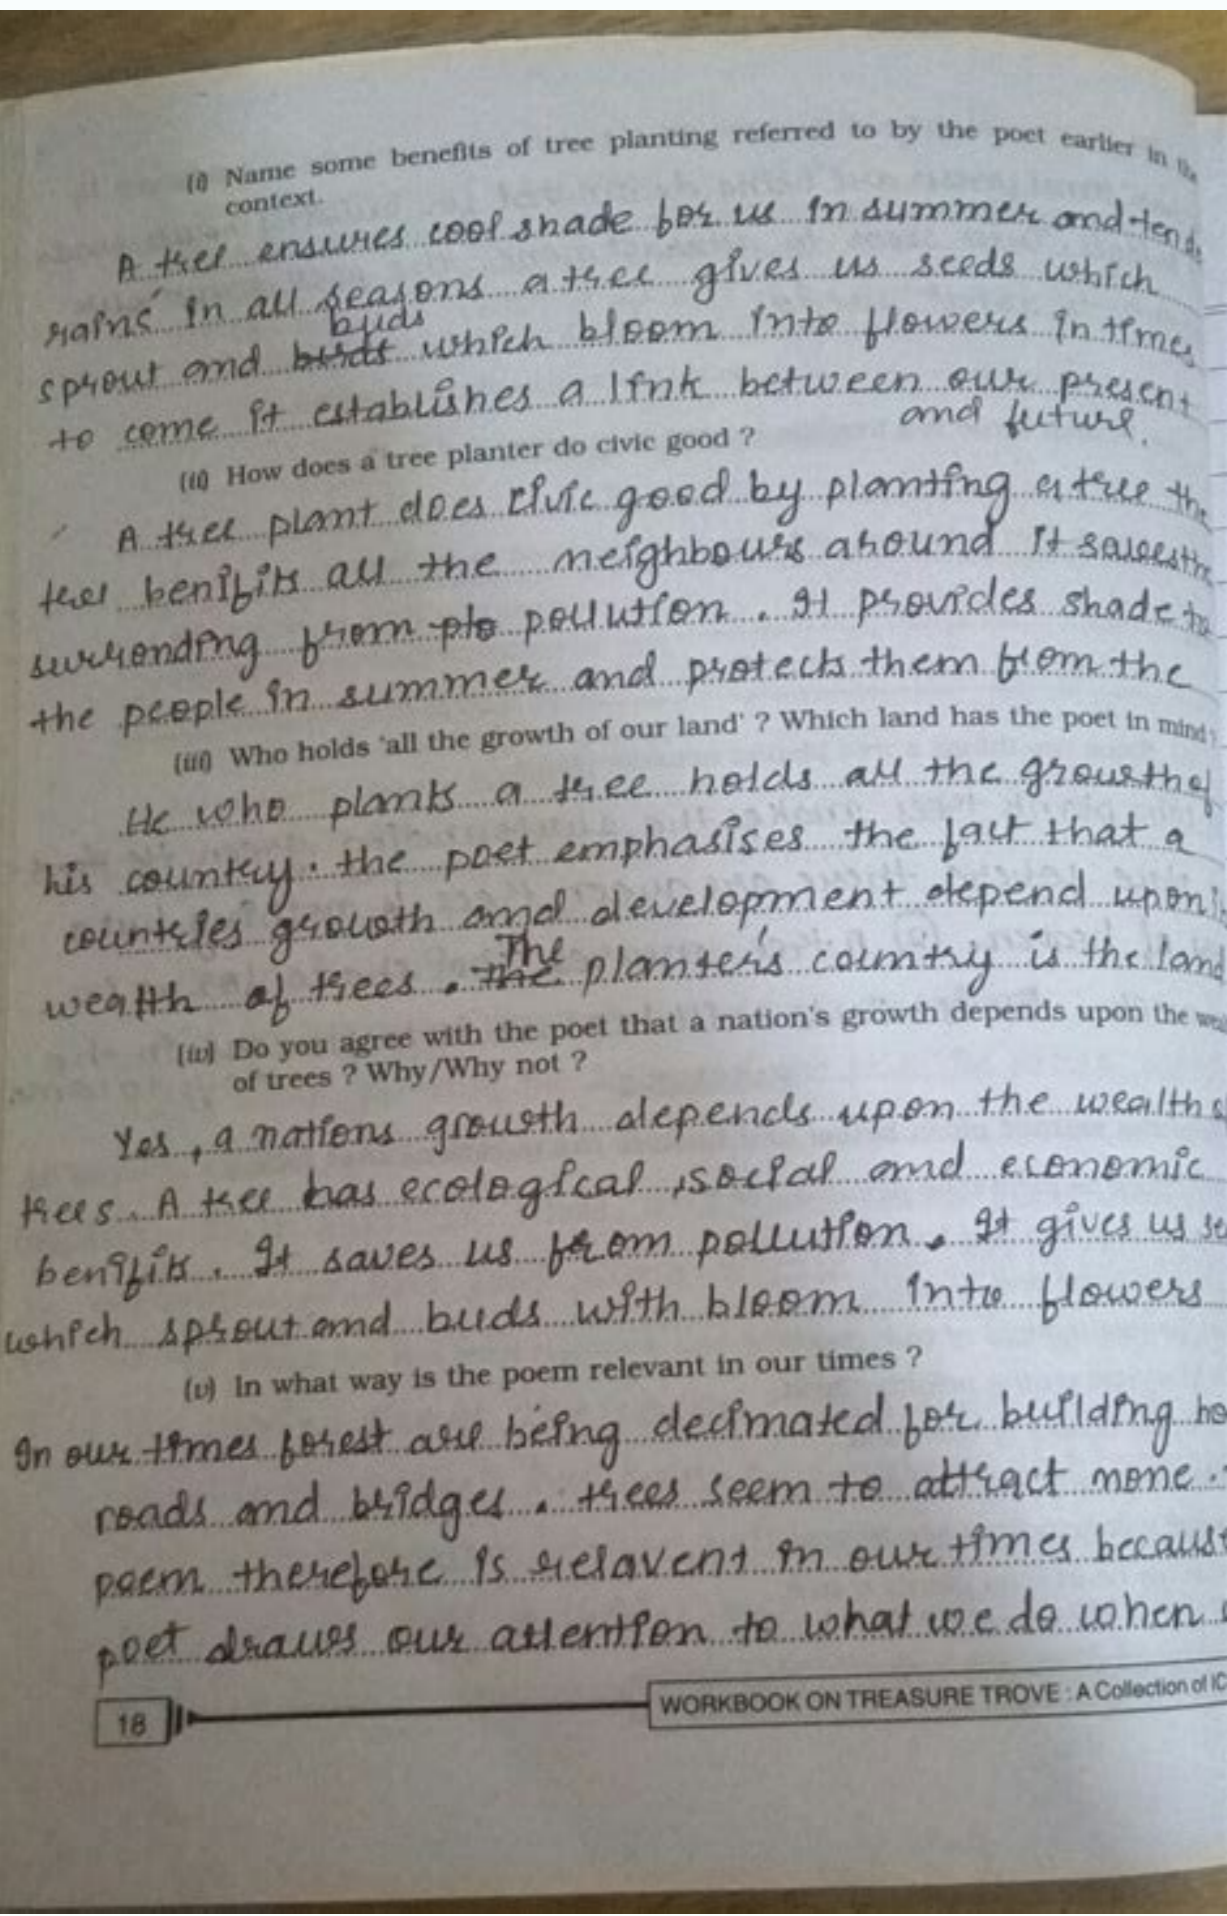 (i) Name some benefits of tree planting referred to by the poet earlier in the
context.
A tree ensures cool shade for us in summer and tends
rains in all seasons a tree gives us seeds which
buds
sprout and birds which bloom into flowers in times
to come it establishes a link between our present
and future.
(ii) How does a tree planter do civic good ?
A tree plant does civic good by planting a tree the
tree benifits all the neighbours around it saves the
surronding from plo pollution. It provides shade to
the people in summer and protects them from the
(iii) Who holds 'all the growth of our land' ? Which land has the poet in mind ?
He who plants a tree holds all the growth of
his country. the poet emphasises the fact that a
countries growth and development depend upon
The
wealth of trees. the planter's country is the land
(iv) Do you agree with the poet that a nation's growth depends upon the
of trees ? Why/Why not ?
Yes, a nations growth depends upon the wealth of
trees. A tree has ecological, social and economic
benifits. It saves us from pollution. It gives us
which sprout and buds with bloom into flowers
(v) In what way is the poem relevant in our times ?
In our times forest are being decimated for building
roads and bridges. trees seem to attract none.
poem therefore is relavent in our times
poet draws our attention to what we do when
18
WORKBOOK ON TREASURE TROVE : A Collection of